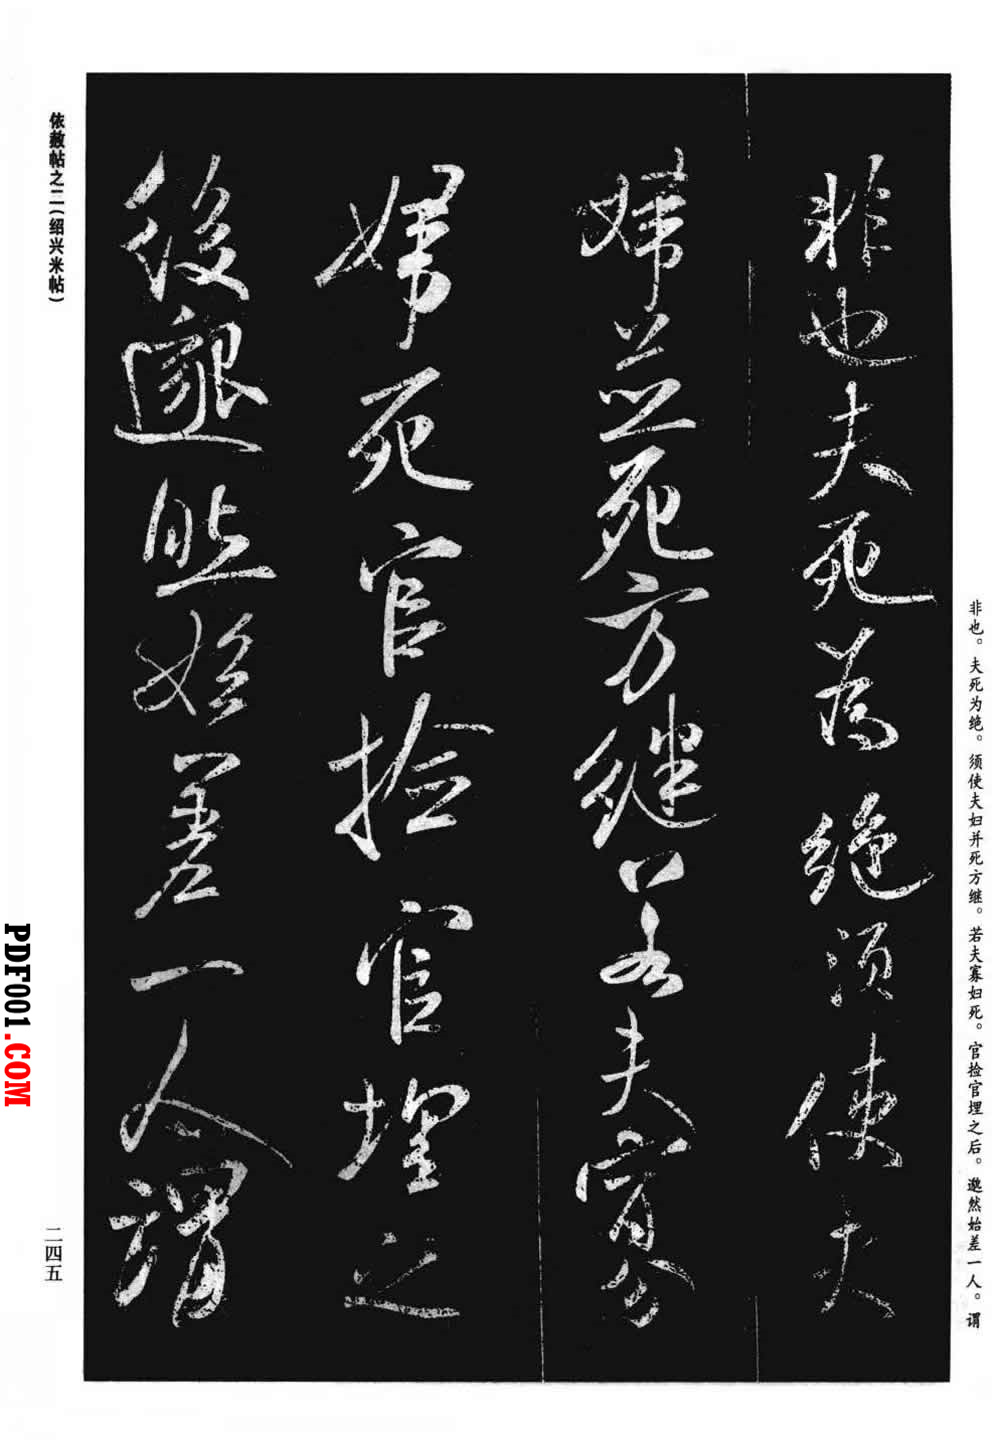 非也夫死為絕須使夫
婦並死方繼若夫寡
婦死官撿官埋之
後邈然始差一人謂
非也。夫死为绝。须使夫妇并死方继。若夫寡妇死。官捡官埋之后。邈然始差一人。谓
依赦帖之二(绍兴米帖)
二四五
PDF001.COM